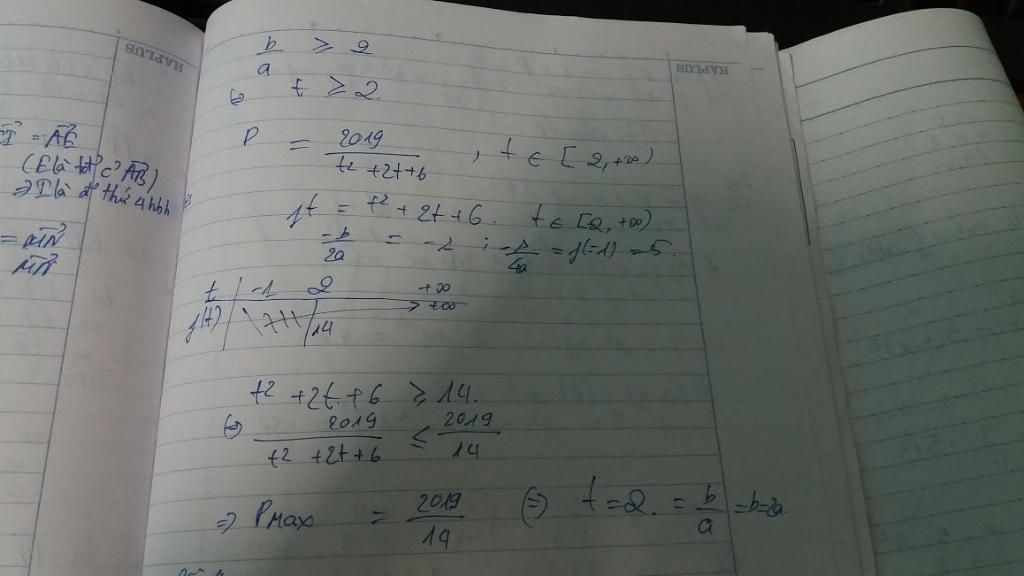 HAPLUS
= AE
(E là tđ c² AB)
⇒ I là đ' thứ 4 hbh
= MN
MN
HAPLUS
b/a ≥ 2
⇔ t ≥ 2.
P = 2019/(t² + 2t + 6) , t ∈ [2, +∞)
ft = t² + 2t + 6. t ∈ [2, +∞)
-b/2a = -1 ; -Δ/4a = f(-1) = 5.
t -1 2 +∞
f(t) 14 +∞
t² + 2t + 6 ≥ 14.
⇔ 2019/(t² + 2t + 6) ≤ 2019/14
⇒ Pmax = 2019/14 (=) t = 2. = b/a = b = 2a.